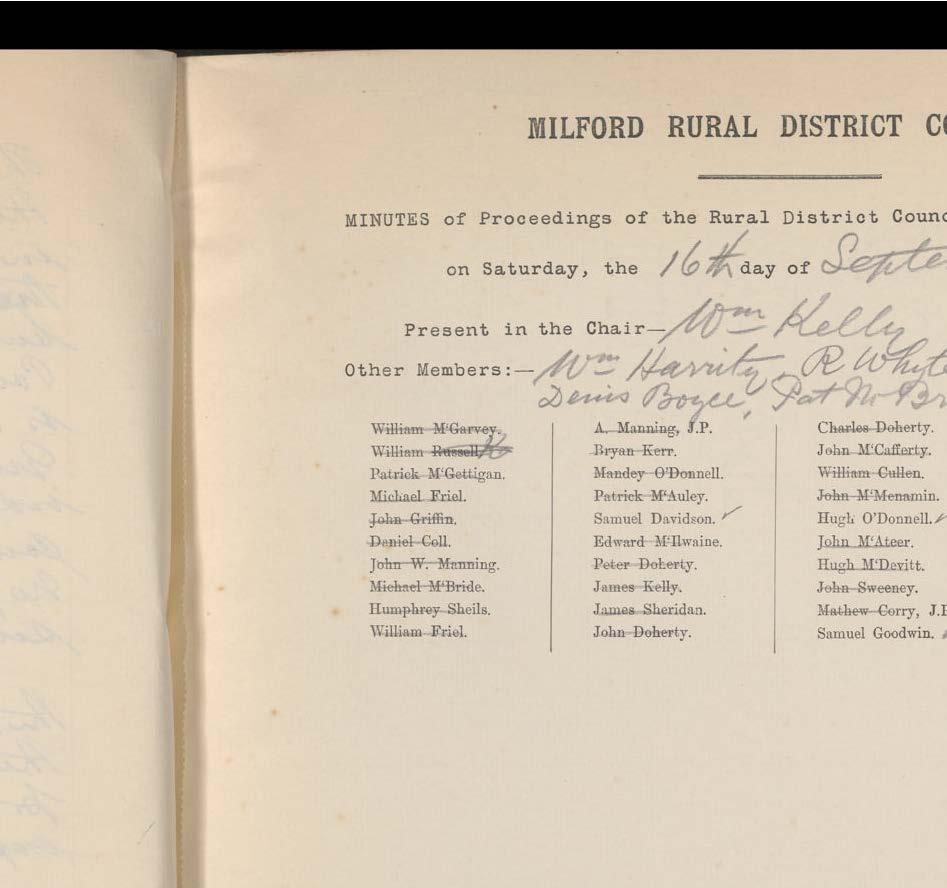 MILFORD RURAL DISTRICT CO
MINUTES of Proceedings of the Rural District Counc
on Saturday, the 16th day of Septe
Present in the Chair— Wm Kelly
Other Members:— Wm Harrity, R Whyte
Denis Boyce, Pat McBr
William M'Garvey. A. Manning, J.P. Charles Doherty.
William Russell Bryan Kerr. John M'Cafferty.
Patrick M'Gettigan. Mandey O'Donnell. William Cullen.
Michael Friel. Patrick M'Auley. John M'Menamin.
John Griffin. Samuel Davidson. ✓ Hugh O'Donnell. ✓
Daniel Coll. Edward M'Ilwaine. John M'Ateer.
John W. Manning. Peter Doherty. Hugh M'Devitt.
Michael M'Bride. James Kelly. John Sweeney.
Humphrey Sheils. James Sheridan. Mathew Corry, J.P
William Friel. John Doherty. Samuel Goodwin.